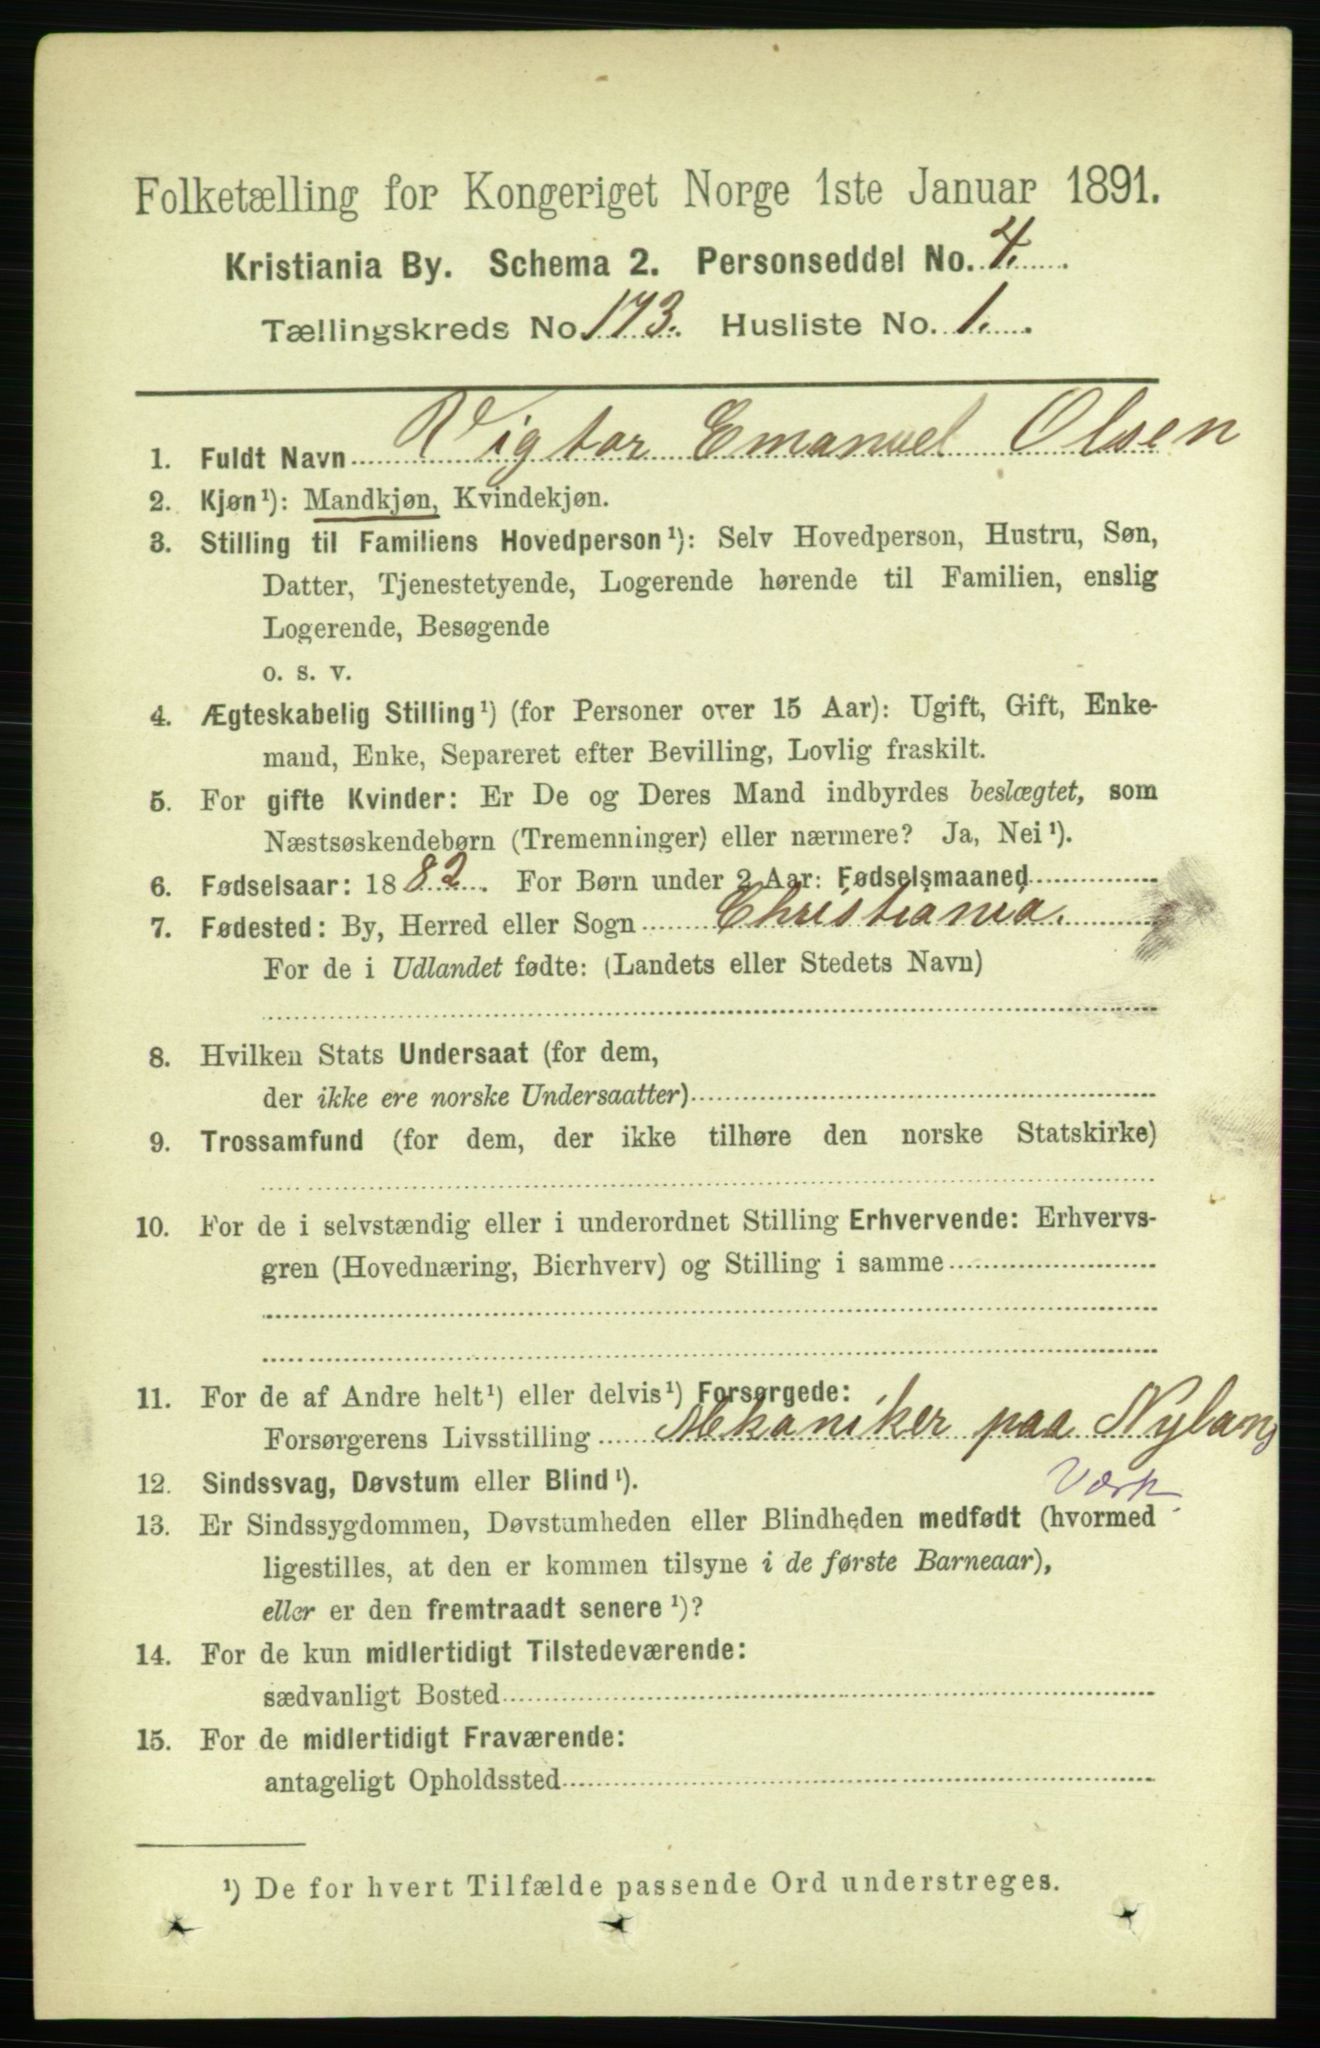 Folketælling for Kongeriget Norge 1ste Januar 1891.
Kristiania By. Schema 2. Personseddel No. 4.
Tællingskreds No. 173. Husliste No. 1.
1. Fuldt Navn Vigtor Emanuel Olsen
2. Kjøn¹): Mandkjøn, Kvindekjøn.
3. Stilling til Familiens Hovedperson¹): Selv Hovedperson, Hustru, Søn,
Datter, Tjenestetyende, Logerende hørende til Familien, enslig
Logerende, Besøgende
o. s. v.
4. Ægteskabelig Stilling¹) (for Personer over 15 Aar): Ugift, Gift, Enke-
mand, Enke, Separeret efter Bevilling, Lovlig fraskilt.
5. For gifte Kvinder: Er De og Deres Mand indbyrdes beslægtet, som
Næstsøskendebørn (Tremenninger) eller nærmere? Ja, Nei¹).
6. Fødselsaar: 1882. For Børn under 2 Aar: Fødselsmaaned
7. Fødested: By, Herred eller Sogn Christiania.
For de i Udlandet fødte: (Landets eller Stedets Navn)
8. Hvilken Stats Undersaat (for dem,
der ikke ere norske Undersaatter)
9. Trossamfund (for dem, der ikke tilhøre den norske Statskirke)
10. For de i selvstændig eller i underordnet Stilling Erhvervende: Erhvervs-
gren (Hovednæring, Bierhverv) og Stilling i samme
11. For de af Andre helt¹) eller delvis¹) Forsørgede:
Forsørgerens Livsstilling Mekaniker paa Nylans
Værk.
12. Sindssvag, Døvstum eller Blind¹).
13. Er Sindssygdommen, Døvstumheden eller Blindheden medfødt (hvormed
ligestilles, at den er kommen tilsyne i de første Barneaar),
eller er den fremtraadt senere¹)?
14. For de kun midlertidigt Tilstedeværende:
sædvanligt Bosted
15. For de midlertidigt Fraværende:
antageligt Opholdssted
¹) De for hvert Tilfælde passende Ord understreges.